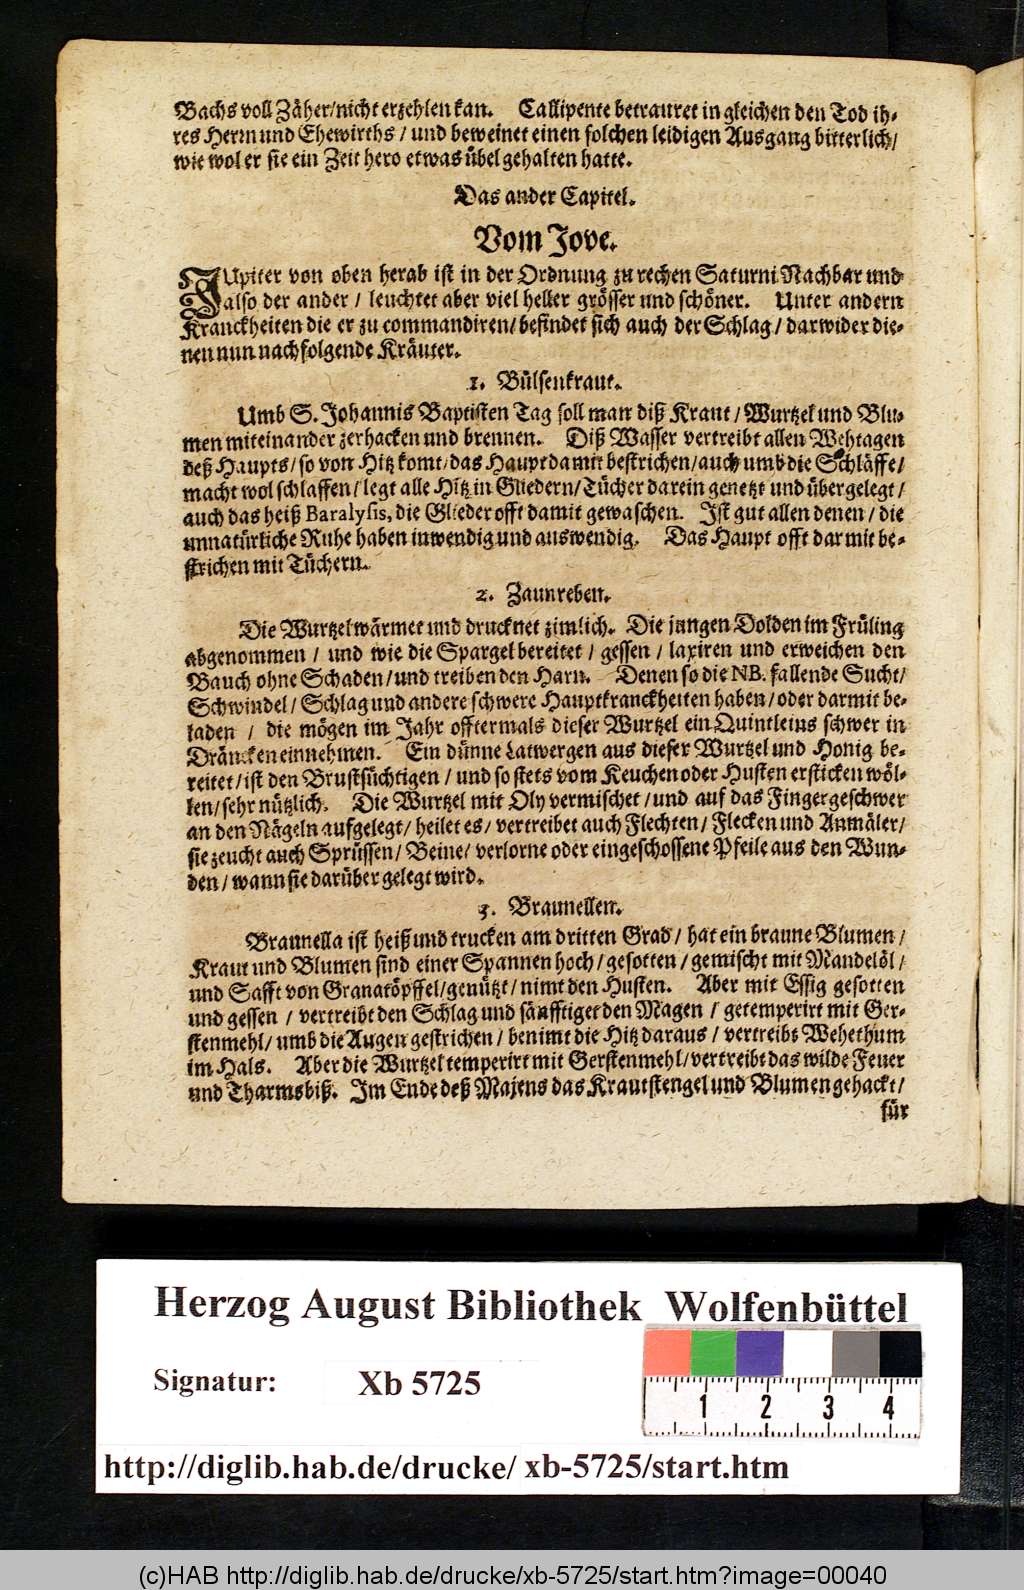 Bachs voll Zäher/nicht erzehlen kan. Callipente betrauret in gleichen den Tod ih-
res Herrn und Ehewirths / und beweinet einen solchen leidigen Ausgang bitterlich/
wie wol er sie ein Zeit hero etwas übel gehalten hatte.
Das ander Capitel.
Vom Jove.
JUpiter von oben herab ist in der Ordnung zu rechen Saturni Nachbar und
also der ander / leuchtet aber viel heller grösser und schöner. Unter andern
Kranckheiten die er zu commandiren/ befindet sich auch der Schlag / darwider die-
nen nun nachfolgende Kräuter.
1. Bülsenkraut.
Umb S. Johannis Baptisten Tag soll man diß Kraut / Wurtzel und Blu-
men miteinander zerhacken und brennen. Diß Wasser vertreibt allen Wehtagen
deß Haupts/ so von Hitz komt/ das Haupt damit bestrichen/ auch umb die Schläffe/
macht wol schlaffen/ legt alle Hitz in Gliedern/ Tücher darein genetzt und übergelegt /
auch das heiß Baralysis, die Glieder offt damit gewaschen. Ist gut allen denen / die
unnatürliche Ruhe haben inwendig und auswendig. Das Haupt offt darmit be-
strichen mit Tüchern.
2. Zaunreben.
Die Wurtzel wärmet und drucknet zimlich. Die jungen Dolden im Früling
abgenommen / und wie die Spargel bereitet / gessen / laxiren und erweichen den
Bauch ohne Schaden/ und treiben den Harn. Denen so die NB. fallende Sucht/
Schwindel/ Schlag und andere schwere Hauptkranckheiten haben/ oder darmit be-
laden / die mögen im Jahr offtermals dieser Wurtzel ein Quintleins schwer in
Dräncken einnehmen. Ein dünne Latwergen aus dieser Wurtzel und Honig be-
reitet/ ist den Brustsüchtigen / und so stets vom Keuchen oder Husten ersticken wöl-
len/ sehr nützlich. Die Wurtzel mit Oly vermischet / und auf das Fingergeschwer
an den Nägeln aufgelegt/ heilet es/ vertreibet auch Flechten/ Flecken und Anmäler/
sie zeucht auch Sprüssen/ Beine/ verlorne oder eingeschossene Pfeile aus den Wun-
den / wann sie darüber gelegt wird.
3. Braunellen.
Braunella ist heiß und trucken am dritten Grad / hat ein braune Blumen /
Kraut und Blumen sind einer Spannen hoch / gesotten / gemischt mit Mandelöl /
und Safft von Granatöpffel/genützt / nimt den Husten. Aber mit Essig gesotten
und gessen / vertreibt den Schlag und sänfftiget den Magen / getemperirt mit Ger-
stenmehl/ umb die Augen gestrichen/ benimt die Hitz daraus / vertreibt Wehethum
im Hals. Aber die Wurtzel temperirt mit Gerstenmehl/ vertreibt das wilde Feuer
und Tharmsbiß. Im Ende deß Majens das Krautstengel und Blumen gehackt/
für
Herzog August Bibliothek Wolfenbüttel
Signatur: Xb 5725
1 2 3 4
http://diglib.hab.de/drucke/ xb-5725/start.htm
(c)HAB http://diglib.hab.de/drucke/xb-5725/start.htm?image=00040